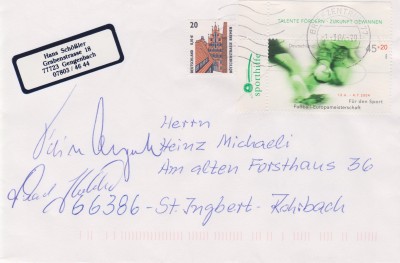 Hans Schößler
Grabenstrasse 18
77723 Gengenbach
07803/ 46 44
20
TALENTE FÖRDERN - ZUKUNFT GEWINNEN
45+20
sporthilfe
Für den Sport
Fußball-Europameisterschaft
Herrn
Heinz Michaeli
Am alten Forsthaus 36
66386-St. Ingbert-Rohrbach